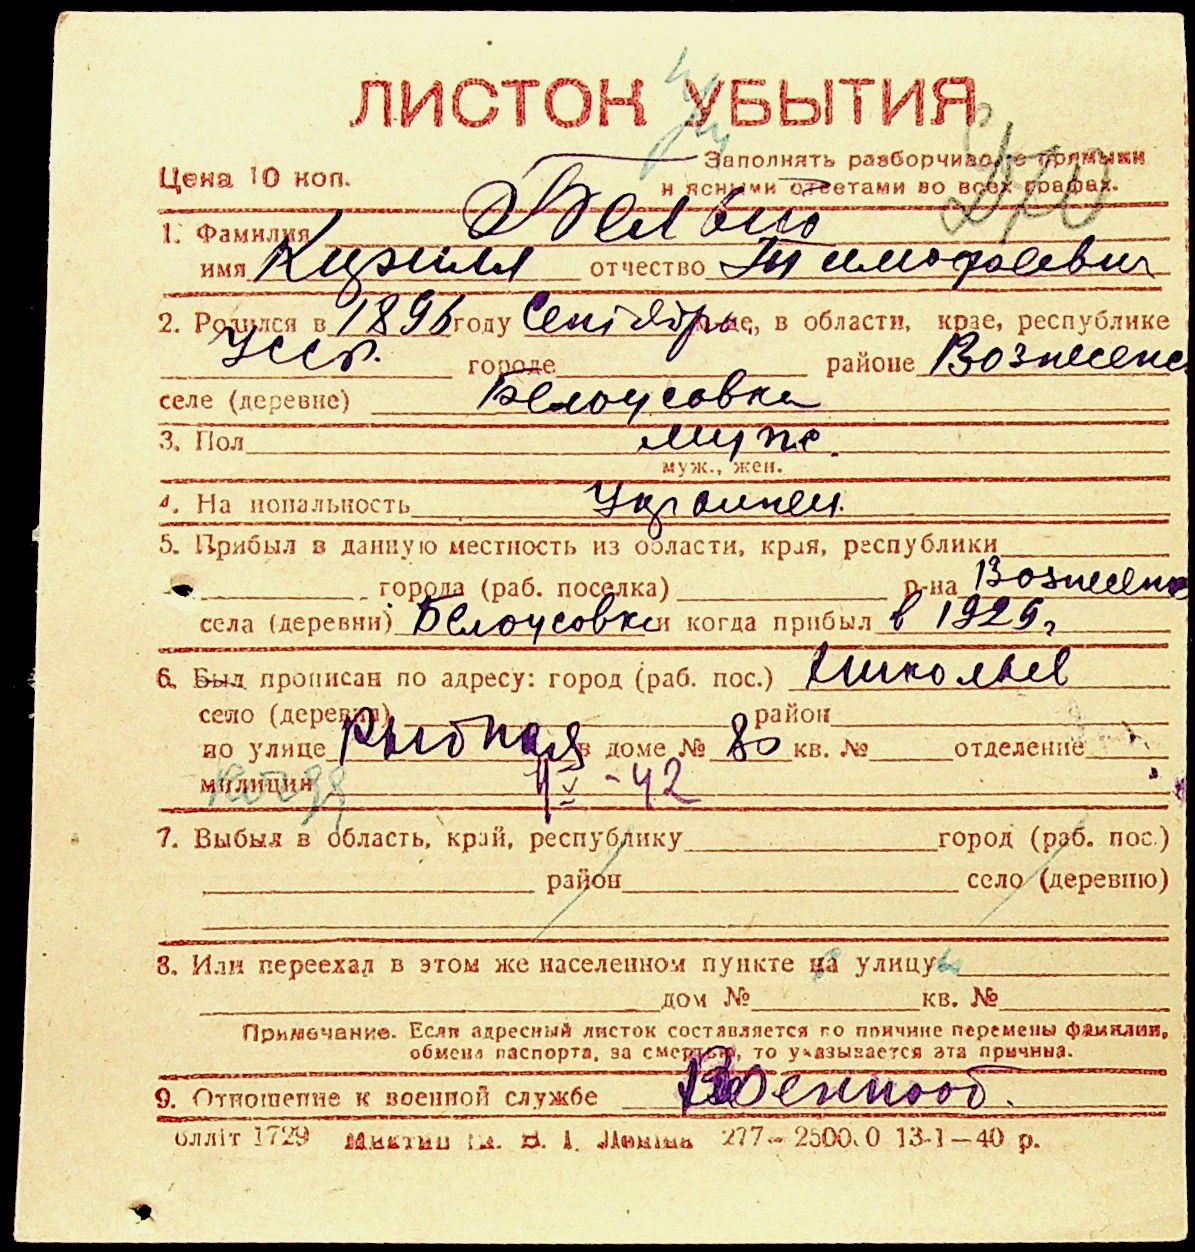 ЛИСТОК УБЫТИЯ
Цена 10 коп.
Заполнять разборчиво, с прямыми
и ясными ответами во всех графах.
1. Фамилия
имя Кирилл отчество Тимофеевич
2. Родился в 1896 году Сентябрь в области, крае, республике
Усср. городе районе Вознесенс
селе (деревне) Белоусовка
3. Пол муж.
муж., жен.
4. На иональность Украинец
5. Прибыл в данную местность из области, края, республики
города (раб. поселка) р-на Вознесенс
села (деревни) Белоусовка и когда прибыл в 1925
6. Был прописан по адресу: город (раб. пос.) Николаев
село (деревня) район
по улице Рыбная в доме № 80 кв. № отделение
милиции 4 V - 42
7. Выбыл в область, край, республику город (раб. пос.)
район село (деревню)
8. Или переехал в этом же населенном пункте на улицу
дом № кв. №
Примечание. Если адресный листок составляется по причине перемены фамилии,
обмена паспорта, за смертью, то указывается эта причина.
9. Отношение к военной службе Военнооб.
олліт 1729 277— 2500.0 13-1—40 р.